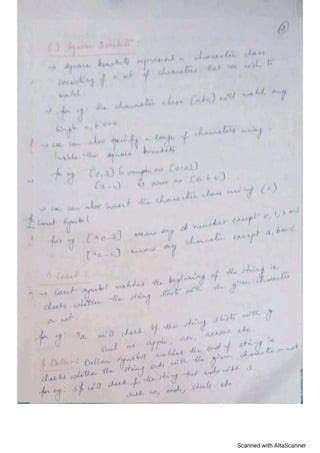 [ ] Square Brackets :
→ square brackets represent a character class
consisting of a set of characters that we wish to
match.
→ for eg. the character class [abc] will match any
single a, b or c
→ we can also specify a range of characters using -
inside the square brackets
for eg. [0, 3] is
[a-c] is same as [abc]
→ we can also invert the character class using (^)
Caret symbol
for eg: [^0-3] means any number except 0, 1, 2 or 3
[^a-c] means any character except a, b or c
^ Caret :
→ Caret symbol matches the beginning of the string ie
checks whether the string starts with the given character
or not
for eg: ^a will check if the string starts with
such as apple,
$ Dollar : Dollar symbol matches the end of string ie
checks whether the string ends with the given character or not
for eg: s$ will check for the string that ends with s
such as, ends, etc
Scanned with AltaScanner